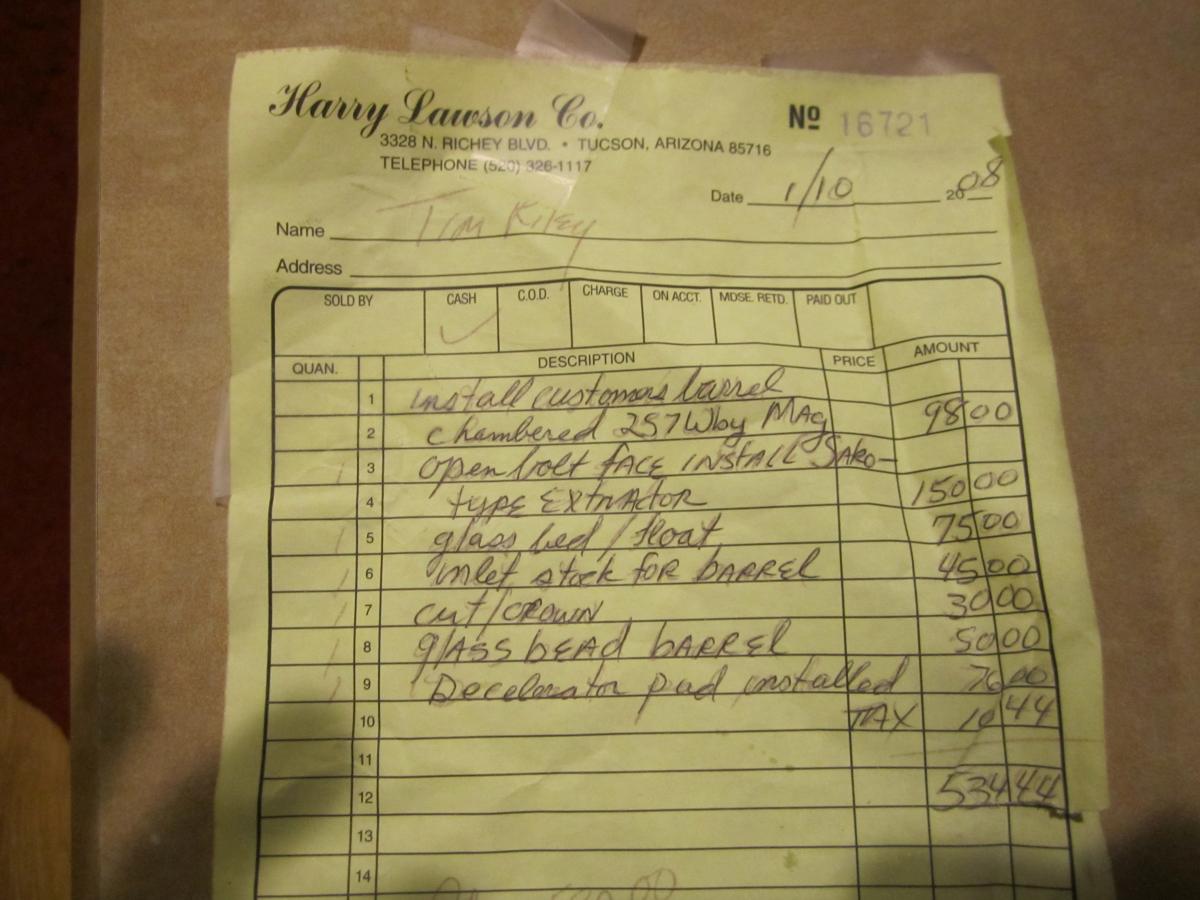 Harry Lawson Co.
Nº 16721
3328 N. RICHEY BLVD. • TUCSON, ARIZONA 85716
TELEPHONE (520) 326-1117
Date 1/10 2008
Name Tim Kiley
Address
SOLD BY CASH C.O.D. CHARGE ON ACCT. MDSE. RETD. PAID OUT
QUAN. DESCRIPTION PRICE AMOUNT
1 install customers barrel
2 chambered 257 Wby MAg 98 00
1 3 open bolt fACE INSTALL SAko-
4 type EXtrActor 150 00
1 5 glass bed / float 75 00
1 6 inlet stock FOR bARREL 45 00
1 7 cut/CROWN 30 00
1 8 glASS bEAD bARREL 50 00
1 9 Decelerator pad installed 76 00
10 TAX 10 44
11
12 534 44
13
14